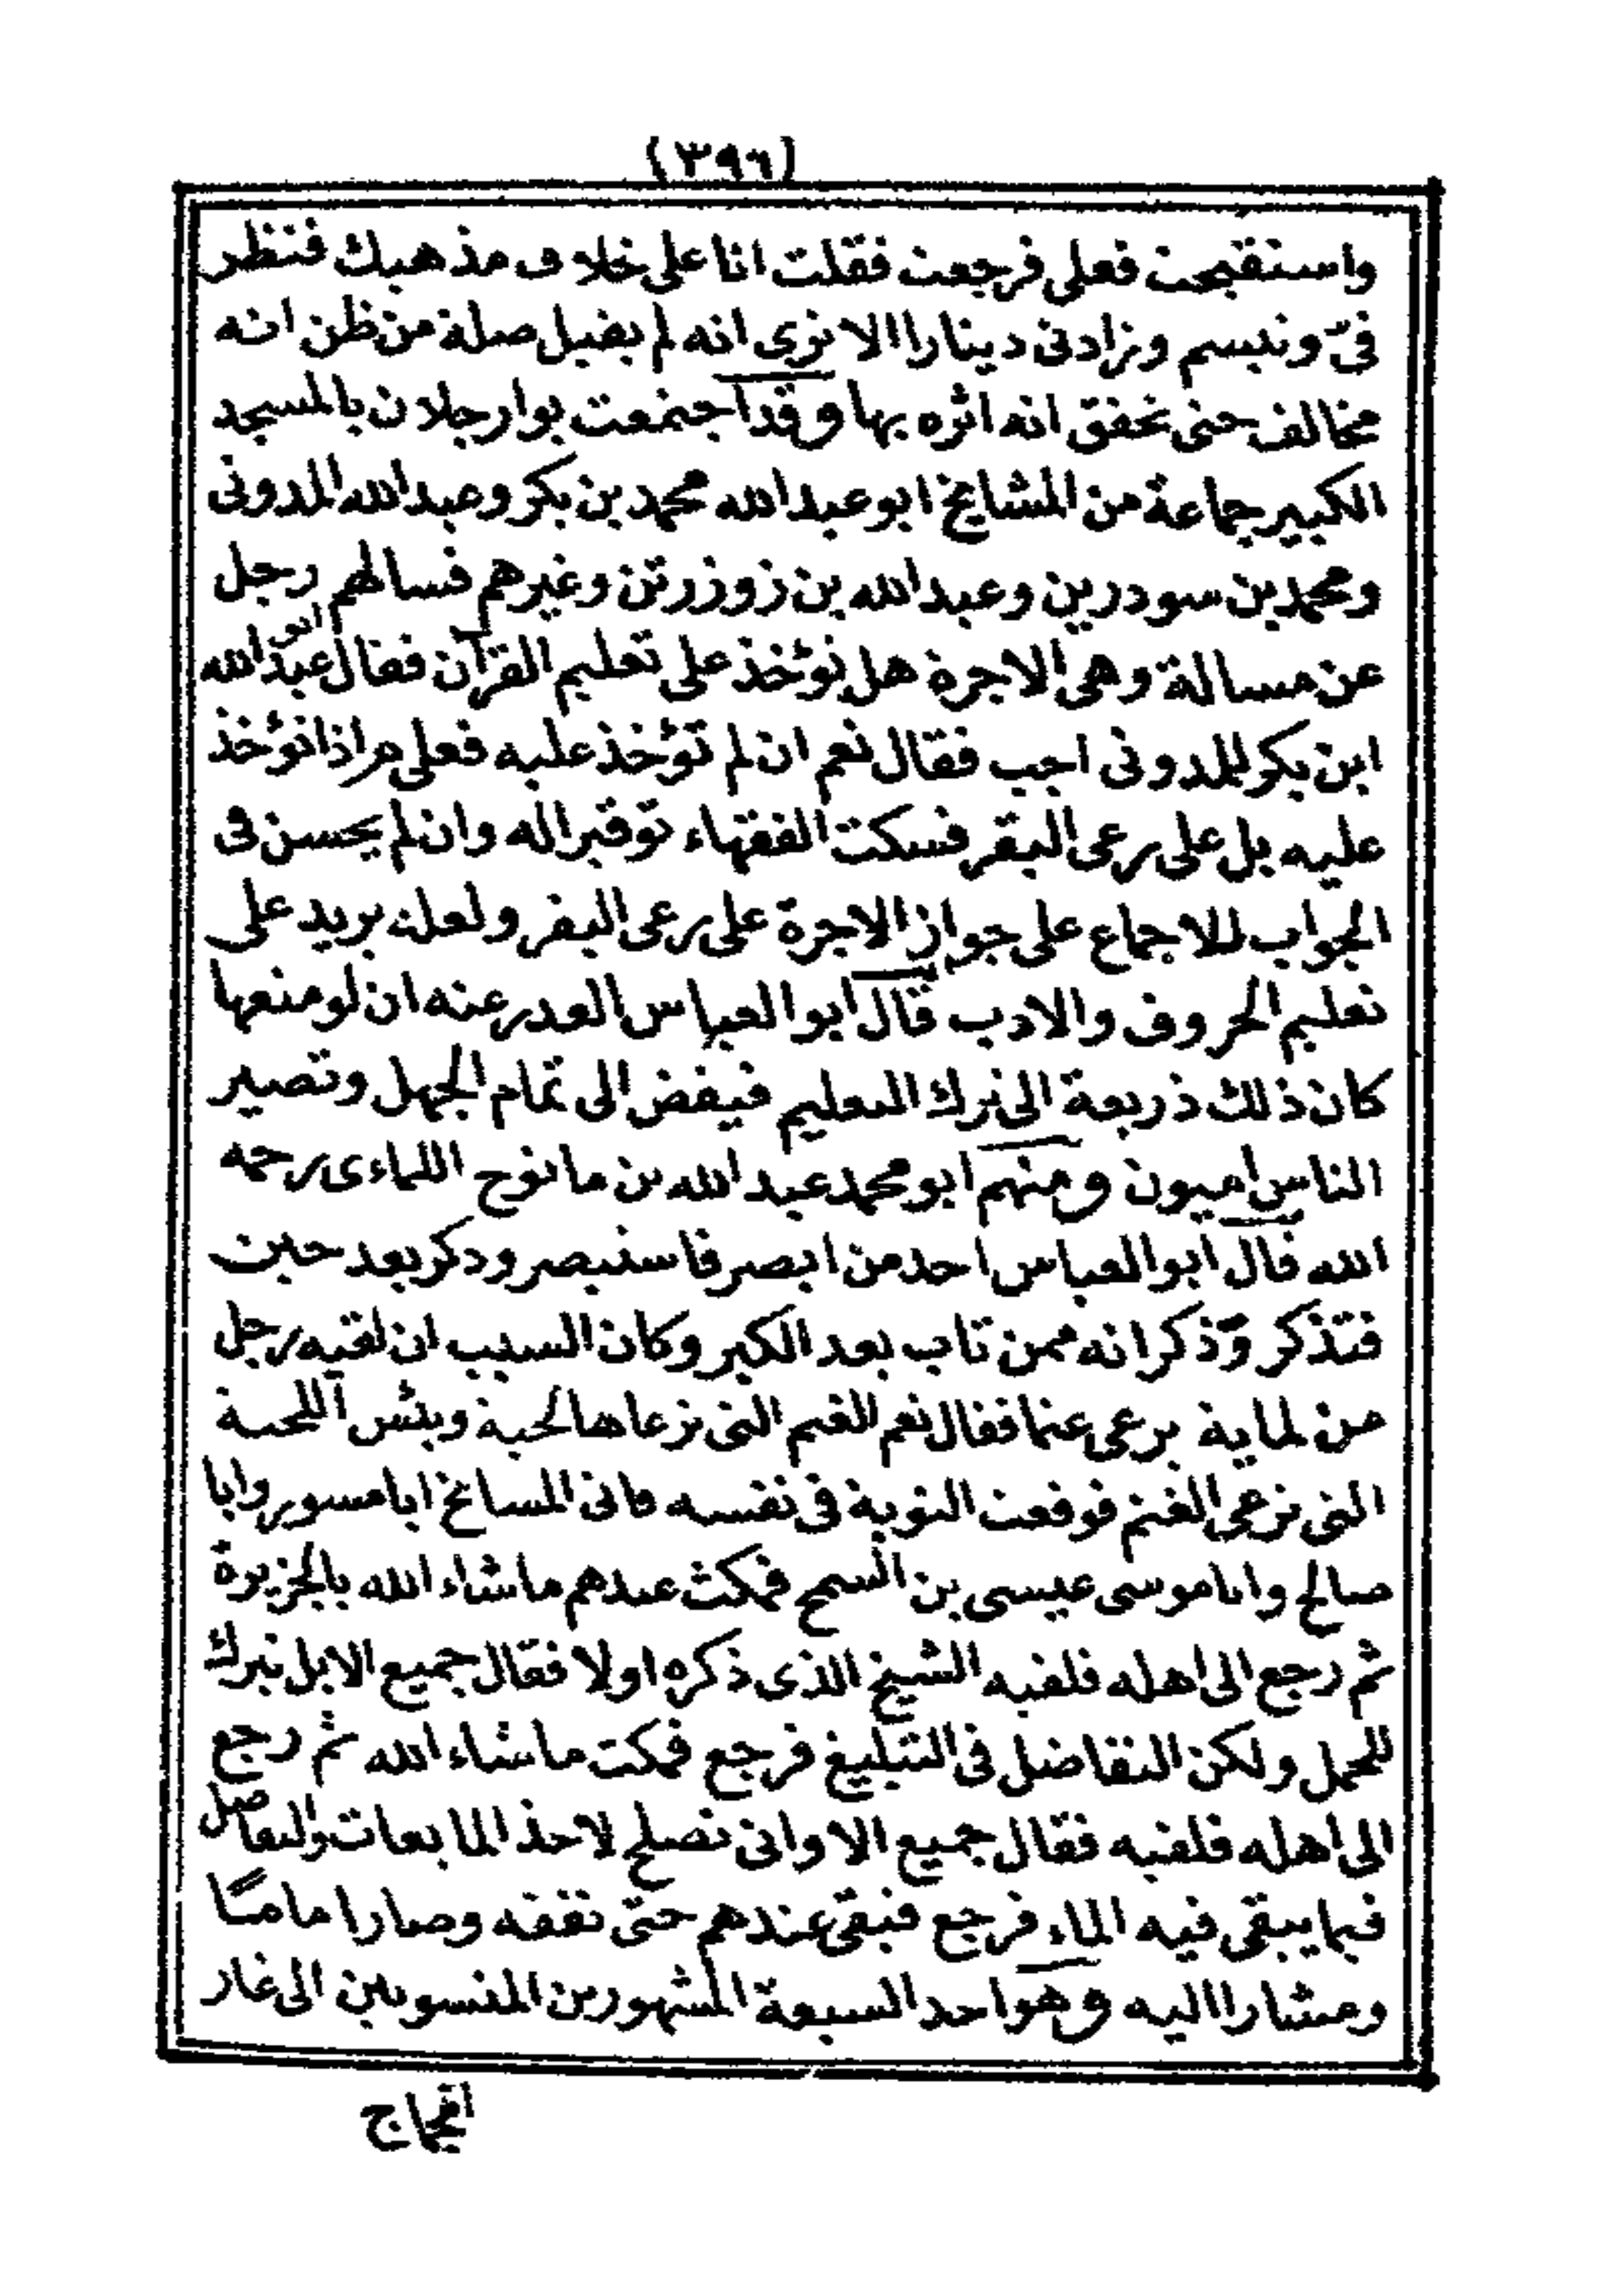 (٣٩٦)
واستقبحت فعلى فرجعت فقلت انا على خلاف مذهبك فنظر
فىّ وتبسم وزادنى دينارا الا ترى انه لم يقبل صلة من ظن انه
مخالف حتى تحقق انه اثره بها وقد اجتمعت بوارجلان بالمسجد
الكبير جماعة من المشايخ ابو عبد الله محمد بن بكر وعبد الله المدونى
ومحمد بن سودرين وعبد الله بن زوزرتن وغيرهم فسالهم رجل
عن مسالة وهى الاجرة هل تؤخذ على تعليم القرآن فقال ابو عبد الله
ابن بكر للمدونى اجب فقال نعم ان لم تؤخذ عليه فعلى م اذا تؤخذ
عليه بل على رعى البقر فسكت الفقهاء توقيرا له وان لم يحسن فى
الجواب للاجماع على جواز الاجرة على رعى البقر ولعله يريد على
تعليم الحروف والادب قال ابو العباس العدر عنه ان لو منعها
كان ذلك ذريعة الى ترك التعليم فيفض الى تمام الجهل وتصير
الناس اميون ومنهم ابو محمد عبد الله بن مانوح اللماءى رحمه
الله قال ابو العباس احد من ابصر فاستبصر ودكر بعد حين
فتذكر وذكر انه ممن تاب بعد الكبر وكان السبب ان لقيه رجل
من لماية يرعى غنما فقال نعم الغنم التى ترعاها لحية وبئس اللحية
التى ترعى الغنم فوقعت التوبة فى نفسه فاتى المسايخ ابا مسور وابا
صالح وابا موسى عيسى بن السمح فمكث عندهم ما شاء الله بالجزيرة
ثم رجع الى اهله فلقيه الشيخ الذى ذكره اولا فقال جميع الابل تبرك
للحمل ولكن التفاضل فى التبليغ فرجع فمكت ما شاء الله ثم رجع
الى اهله فلقيه فقال جميع الاوانى تصلح لاخذ المايعات والتفاضل
فيما يبقى فيه الماء فرجع فبقى عندهم حتى تفقه وصار اماما
ومشارا اليه وهو احد السبعة المشهورين المنسوبين الى غار